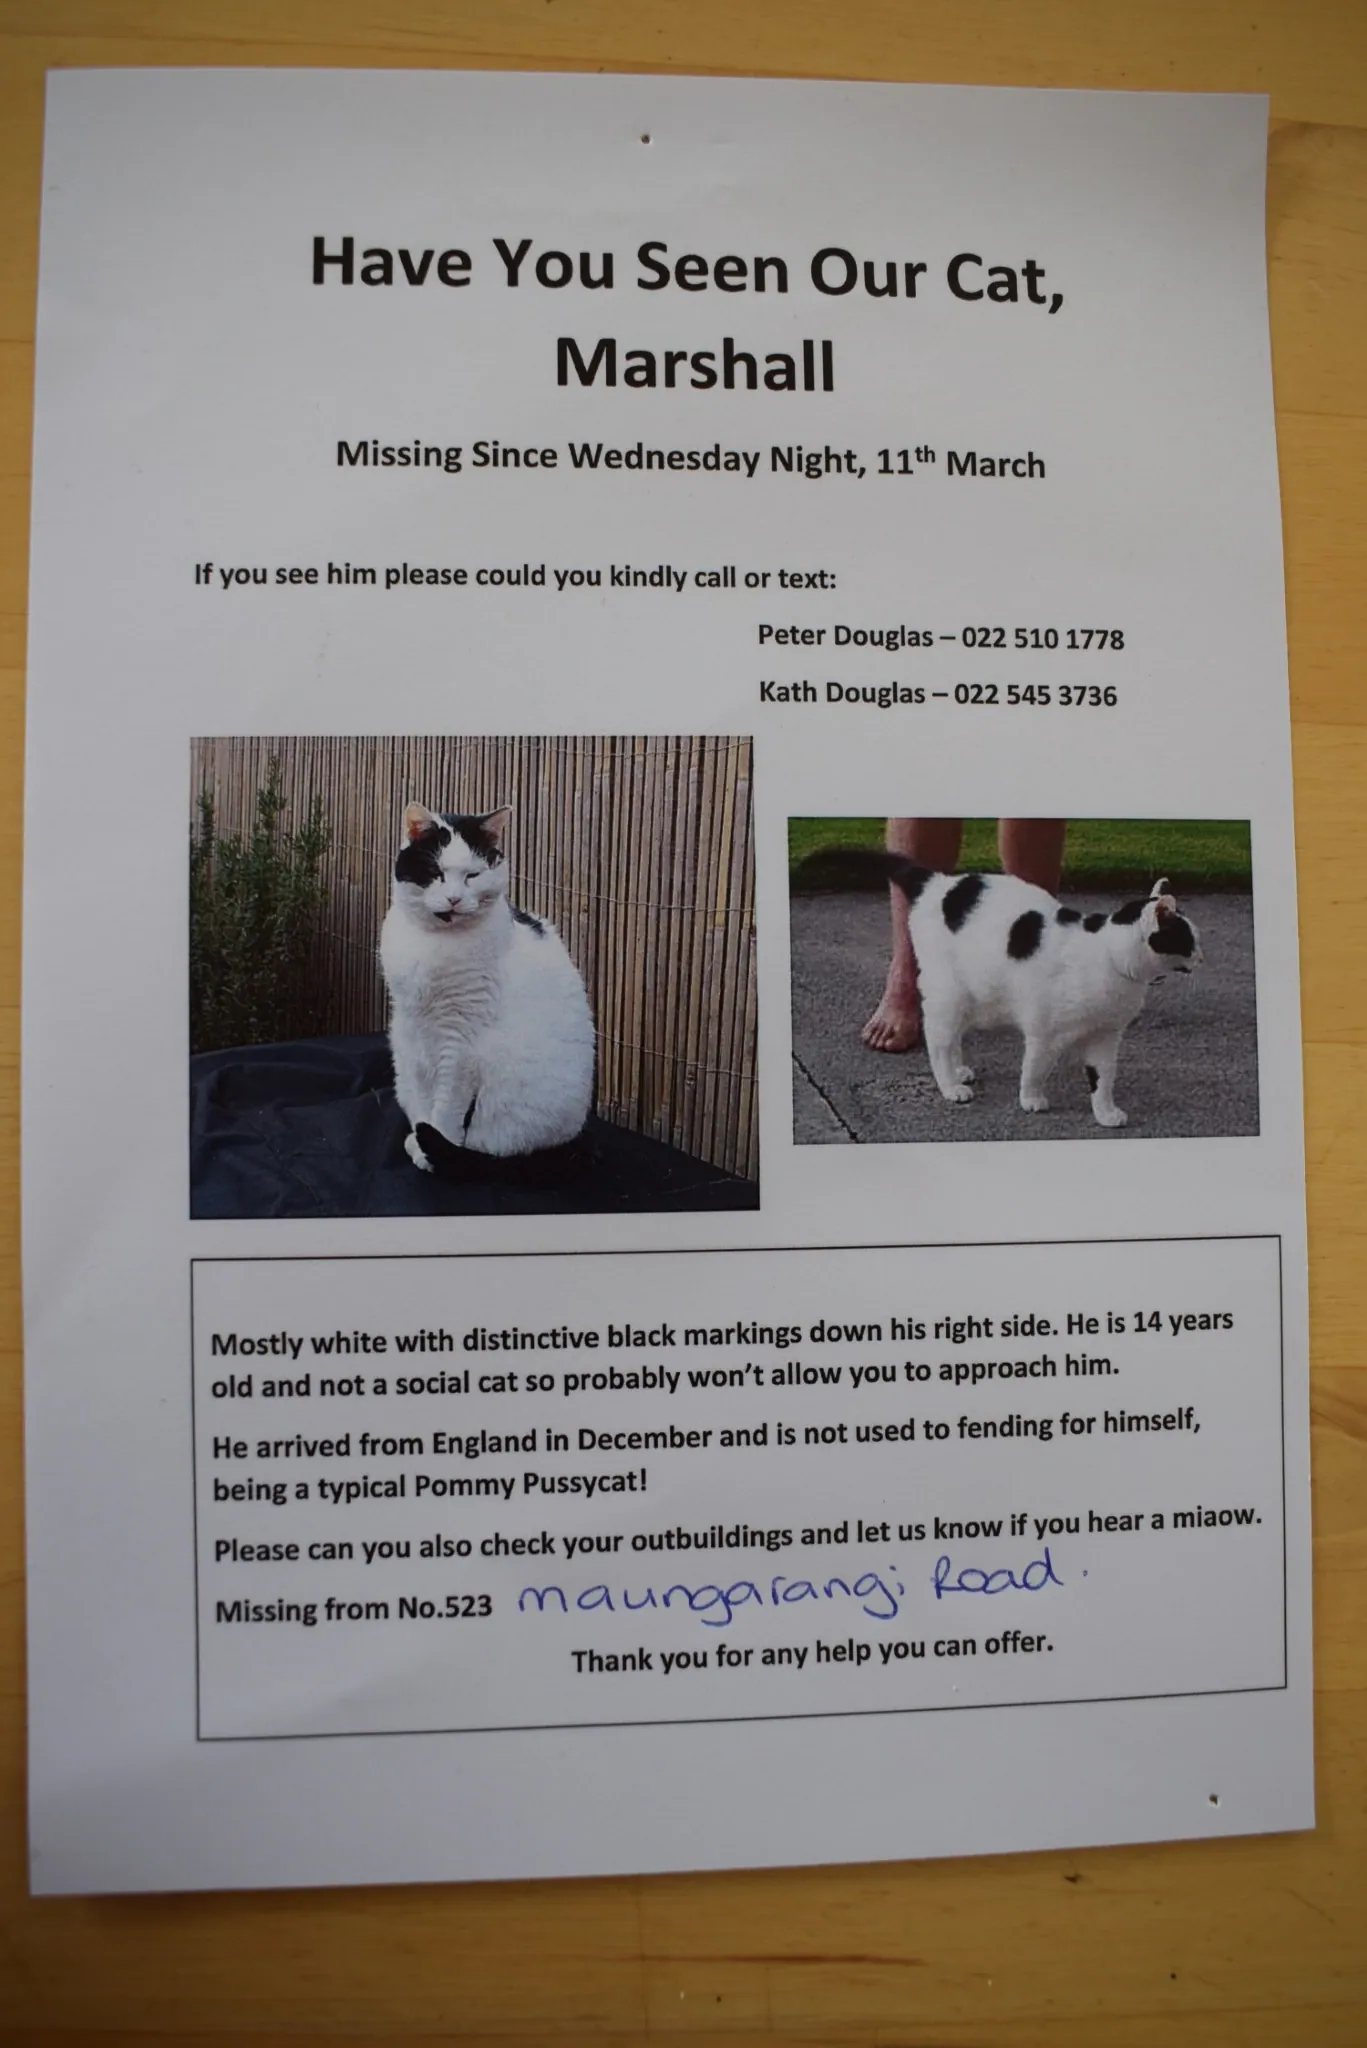 Have You Seen Our Cat,
Marshall
Missing Since Wednesday Night, 11th March
If you see him please could you kindly call or text:
Peter Douglas – 022 510 1778
Kath Douglas – 022 545 3736
Mostly white with distinctive black markings down his right side. He is 14 years
old and not a social cat so probably won't allow you to approach him.
He arrived from England in December and is not used to fending for himself,
being a typical Pommy Pussycat!
Please can you also check your outbuildings and let us know if you hear a miaow.
Missing from No.523 maungarangi Road.
Thank you for any help you can offer.